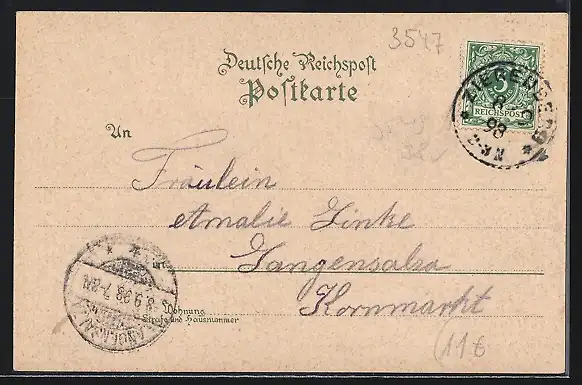 3547
Deutsche Reichspost
Postkarte
5
REICHSPOST
An
Fräulein
Amalie Linke
Langensalza
Kornmarkt
Wohnung
Straße und Hausnummer
9.98 7-8N
2-3N
11€